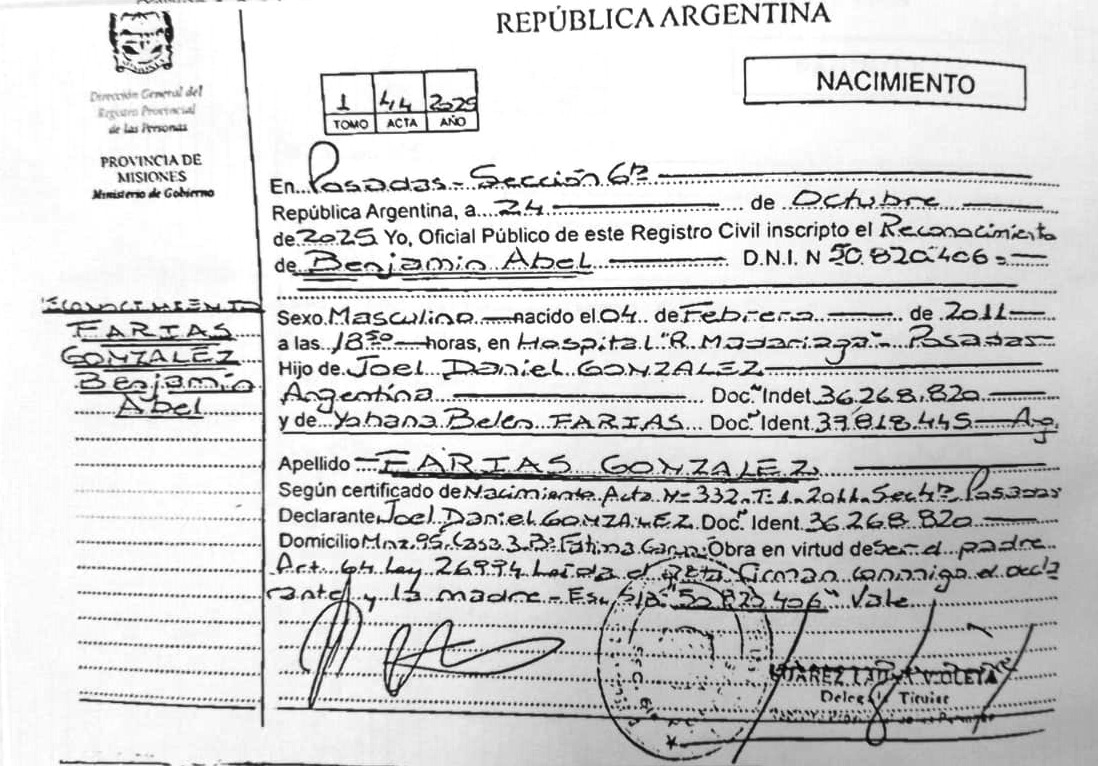 REPÚBLICA ARGENTINA
NACIMIENTO
Dirección General del
Registro Provincial
de las Personas
PROVINCIA DE
MISIONES
Ministerio de Gobierno
1 44 2025
TOMO ACTA AÑO
En Posadas - Sección 6ª
República Argentina, a 24 de Octubre
de 2025 Yo, Oficial Público de este Registro Civil inscripto el Reconocimiento
de Benjamin Abel D.N.I. N 50.820.406
Sexo Masculino nacido el 04 de Febrero de 2011
a las 18 horas, en Hospital "R. Madariaga" - Posadas
Hijo de Joel Daniel GONZALEZ
Argentina Doc. Indet 36.268.820
y de Yohana Belen FARIAS Doc. Ident. 37.818.445 - Ag.
Apellido FARIAS GONZALEZ
Según certificado de Nacimiento Acta Nº 332 - T. 1 - 2011 - Secc 4ª Posadas
Declarante Joel Daniel GONZALEZ Doc. Ident. 36.268.820
Domicilio Mnz. 95, Casa 3, Bº Fatima Obra en virtud de ser el padre
Art. 64 Ley 26994 Leida el acta firman conmigo el decla
rante y la madre - Vale
ECONOCIMIENTO
FARIAS
GONZALEZ
Benjamin
Abel
VIOLETA
Titular